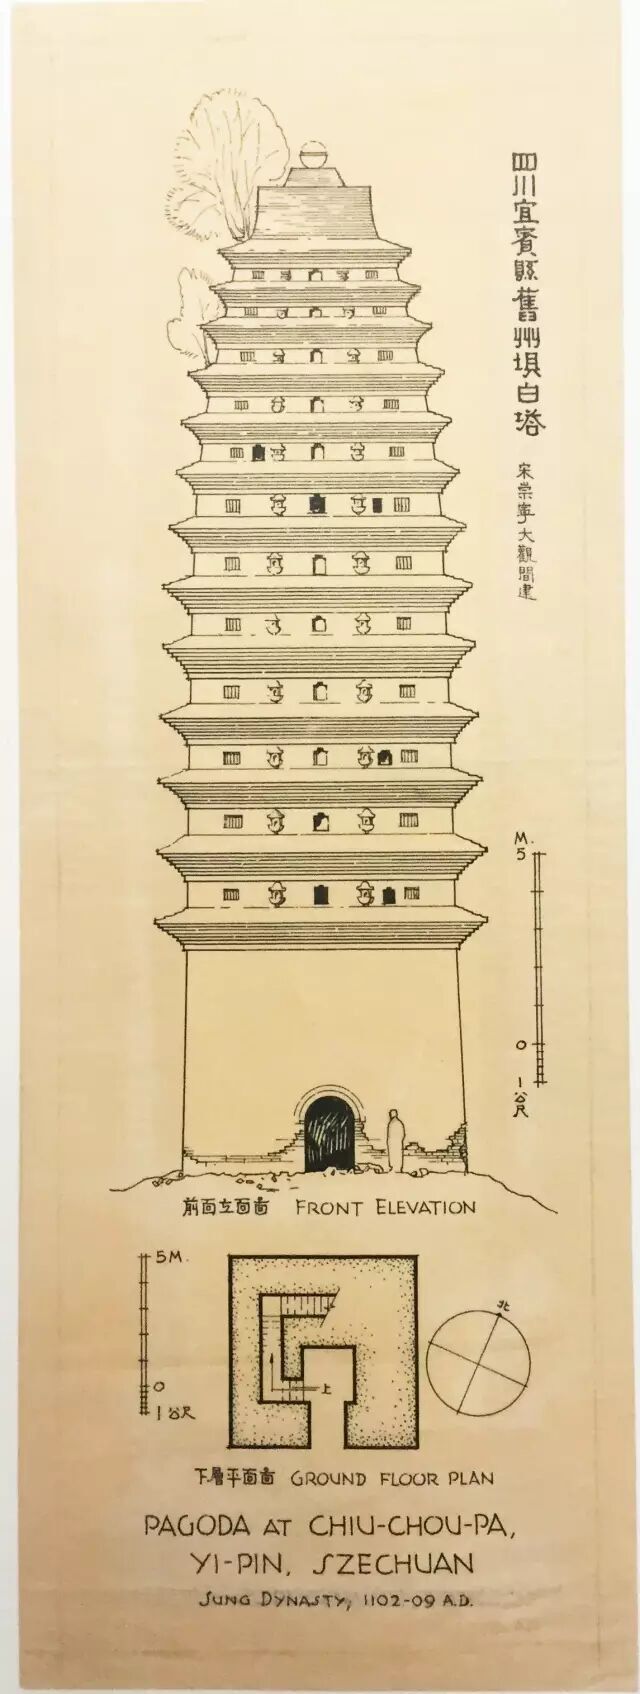 四川宜賓縣舊州垻白塔
宋崇寧大觀間建
M.
5
0
1公尺
前面立面圖 FRONT ELEVATION
5M.
0
1公尺
上
北
下層平面圖 GROUND FLOOR PLAN
PAGODA AT CHIU-CHOU-PA,
YI-PIN, SZECHUAN
SUNG DYNASTY, 1102-09 A.D.